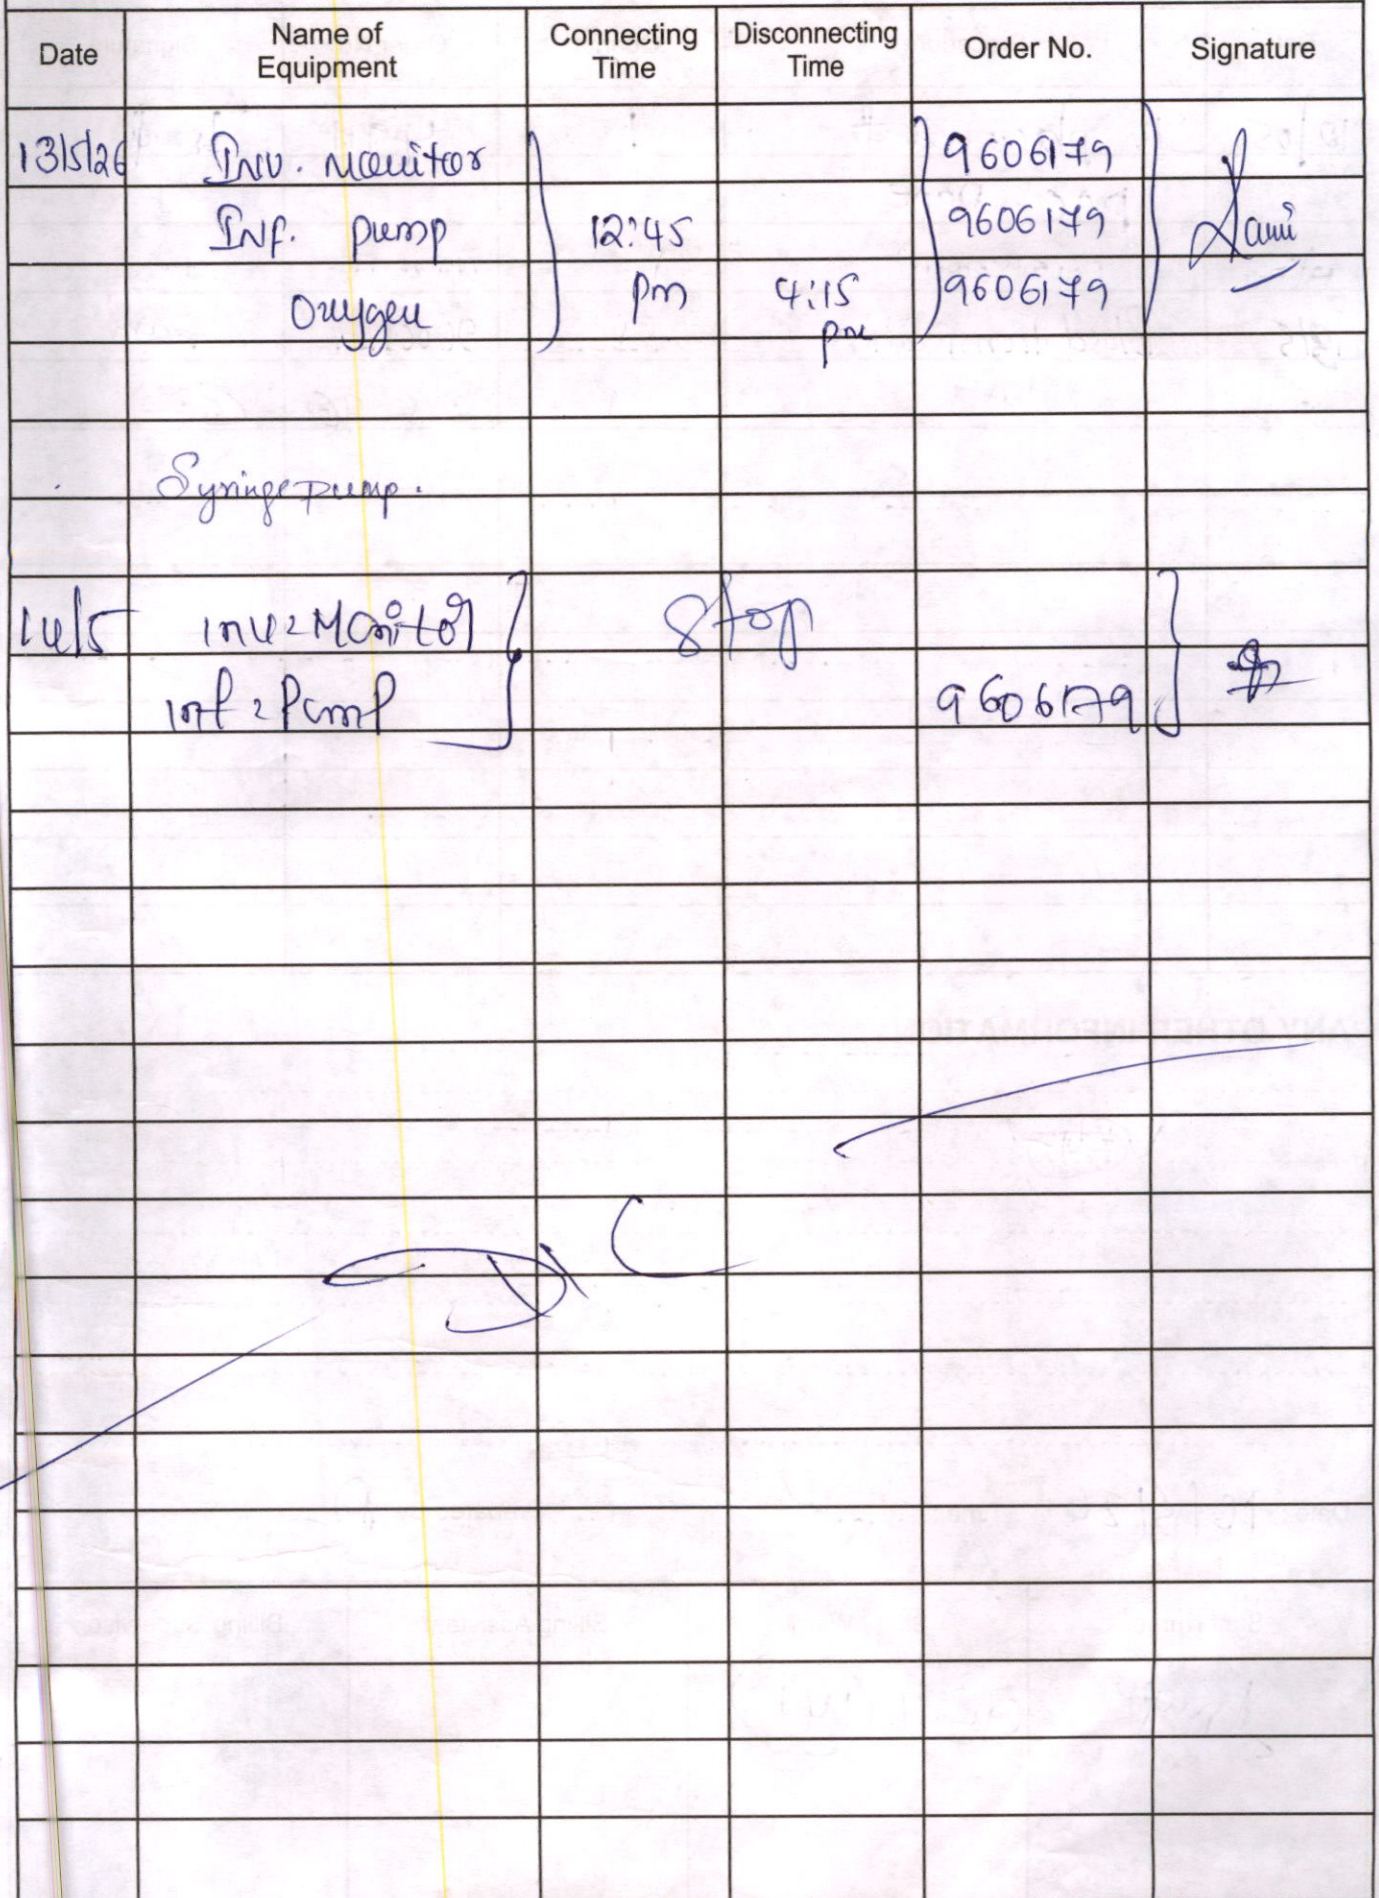 Date Name of Equipment Connecting Time Disconnecting Time Order No. Signature
13/5/26 Inv. Monitor 9606179
Inf. pump 12:45 9606179
Oxygen pm 4:15 pm 9606179
Syringe pump.
14/5 inv = Monitor Stop
inf = Pump 9606179
D/C